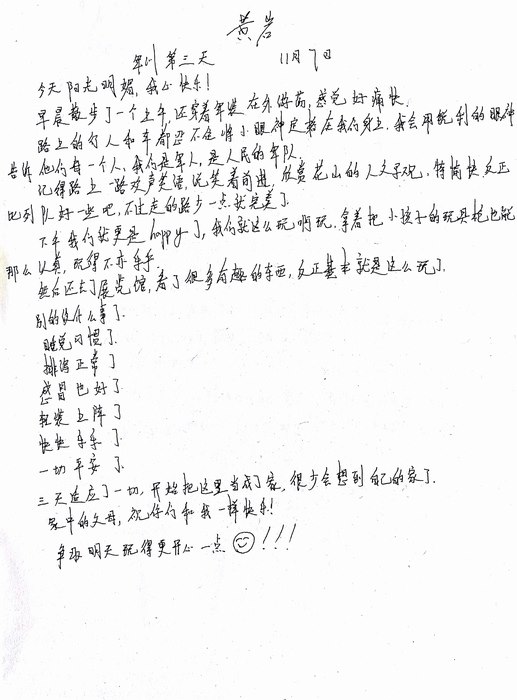 黄岩
军训第三天 11月7日
今天阳光明媚，我心快乐！
早晨散步了一个上午，还穿着军装在外做菊，感觉好痛快。
路上的行人和车都忍不住将小眼神定格在我们身上，我会用锐利的眼神
告诉他们每一个人，我们是军人，是人民的军队。
记得路上一路欢声笑语，说笑着前进，欣赏花山的人文景观，特愉快反正
比列队好一些吧，不过走的路少一点就完美了。
下午我们就更是happy了，我们就这么玩啊玩，拿着把小孩子的玩具枪也能
那么认真，玩得不亦乐乎。
然后还去了展览馆，看了很多有趣的东西，反正基本就是这么玩了。
别的没什么事了。
睡觉习惯了。
排泻正常了
感冒也好了。
轻装上阵了
快快乐乐了。
一切平安了。
三天适应了一切，开始把这里当成了家，很少会想到自己的家了。
家中的父母，祝你们和我一样快乐！
争取明天玩得更开心一点😊！！！